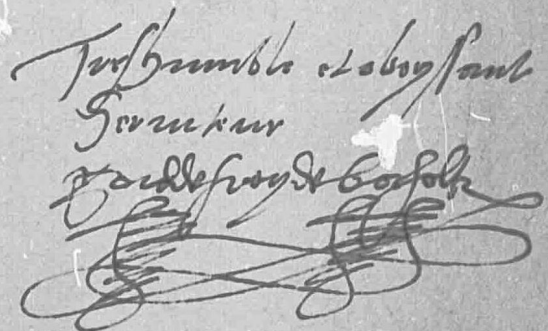 Treshumble et obeyssant
Seruiteur
goddefroy de bocholtz